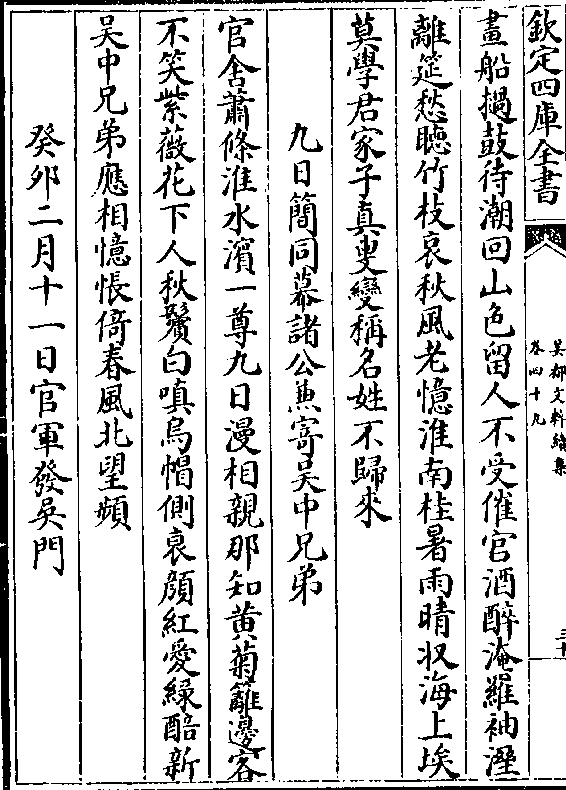 欽定四庫全書
吳都文粹續集
卷四十九
畫船撾鼓待潮回山色留人不受催官酒醉淹羅袖溼
離筵愁聴竹枝哀秋風老憶淮南桂暑雨晴收海上埃
莫學君家子真叟變稱名姓不歸來
九日簡同幕諸公兼寄吳中兄弟
官舍蕭條淮水濱一尊九日漫相親那知黄菊籬邊客
不笑紫薇花下人秋鬢白嗔烏㡌側衰顔紅愛緑醅新
吳中兄弟應相憶悵倚春風北望頻
癸夘二月十一日官軍發吳門